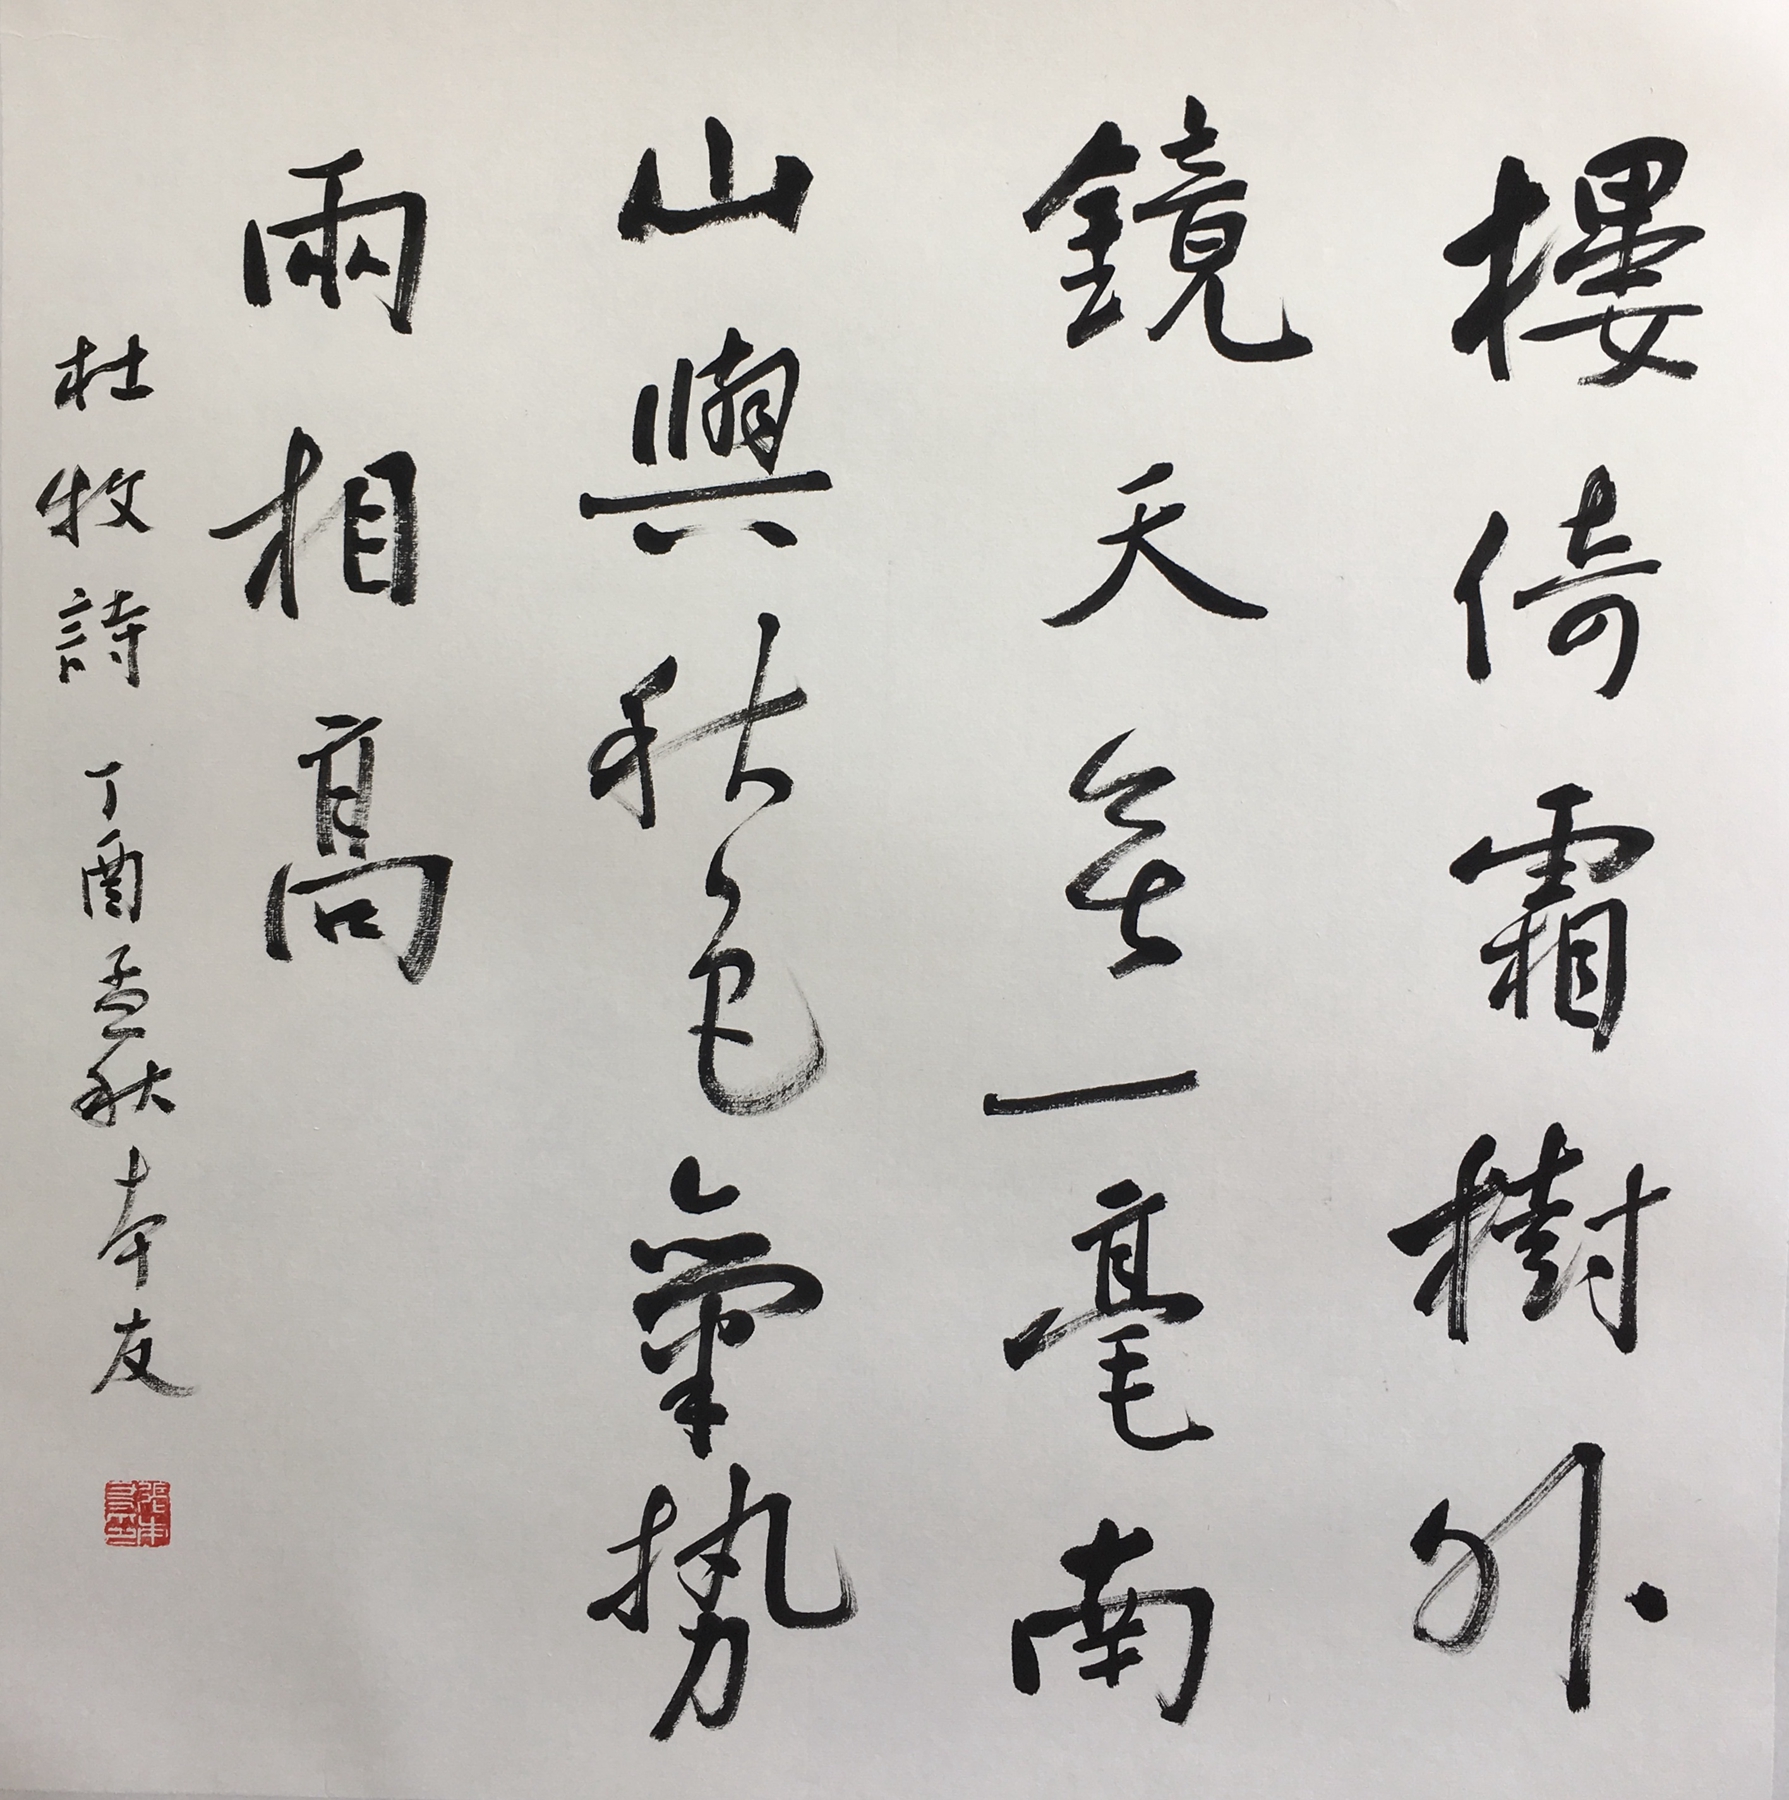 樓倚霜樹外
鏡天無一毫南
山與秋色氣勢
兩相高
杜牧詩 丁酉孟秋本友
張本友印